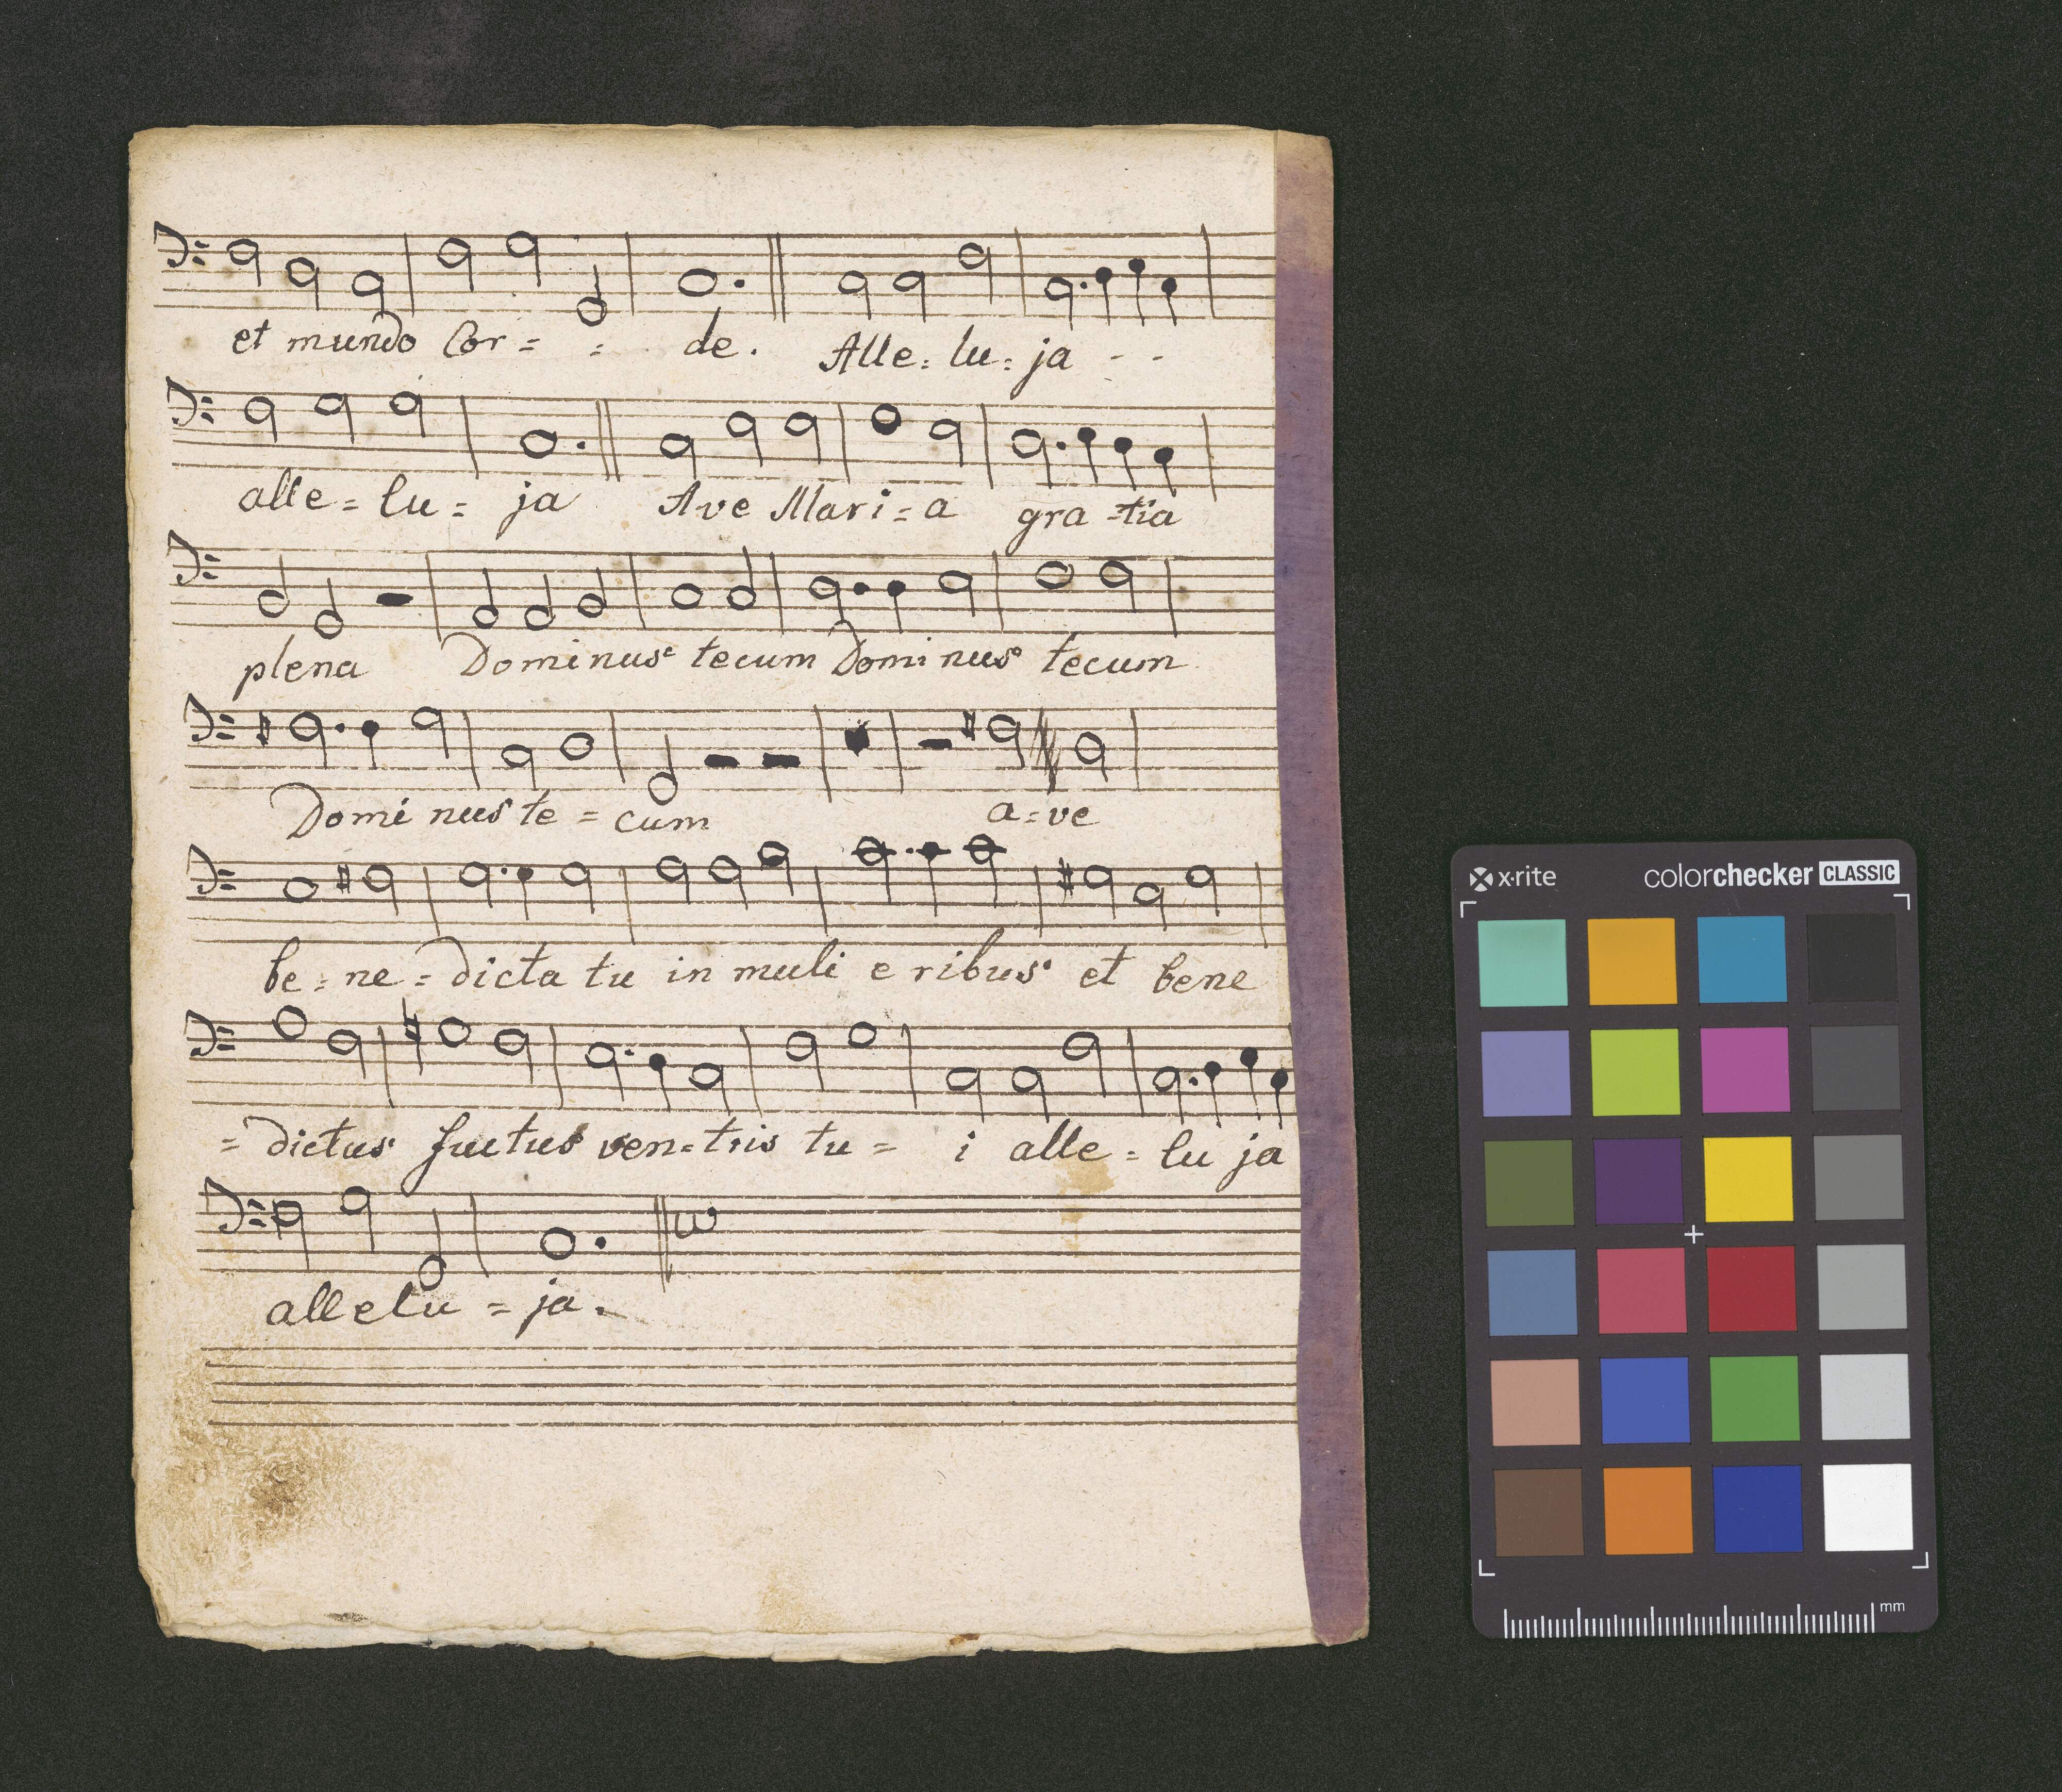 et mundo Cor = = de. Alle: lu: ja - -
alle = lu = ja Ave Mari = a gra = tia
plena Dominus tecum Dominus tecum
Domi nus te = cum a = ve
be: ne = dicta tu in muli e ribus et bene
= dictus fuctus ven = tris tu = i alle = lu ja
allelu = ja.
x·rite colorchecker CLASSIC
mm